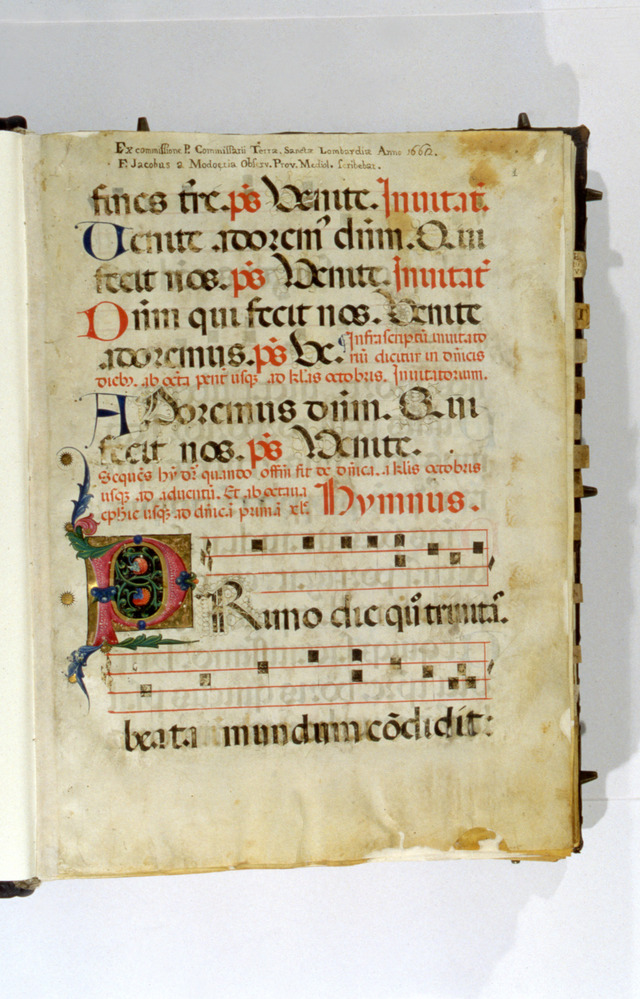 Ex commissione P. Commissarii Terræ Sanctæ Lombardiæ Anno 1662.
F. Jacobus a Modoetia Observ. Prov. Mediol. scribebat.
1
fines tr̄e. p̄s Venite. Inuitat̄.
Uenite adorem̄ dūm. Qui
fecit nos. p̄s Venite. Inuitat̄
Dūm qui fecit nos. Venite
adoremus. p̄s Ve. Infrascriptū inuitato
riū dicitur in dn̄icis
dieb₉. ab octa pent̄ usqꝫ ad kl̄as octobris. Inuitatorium.
Adoremus dūm. Qui
fecit nos. p̄s Venite.
Sequēs hy̅ dr̄ quando offm̄ fit de dn̄ica. a klis octobris
usqꝫ ad aduentū. Et ab octaua
ephie usqꝫ ad dn̄icā primā xl̄e. Hymnus.
PRimo die qūo trinitas.
beata mundum cōdidit: